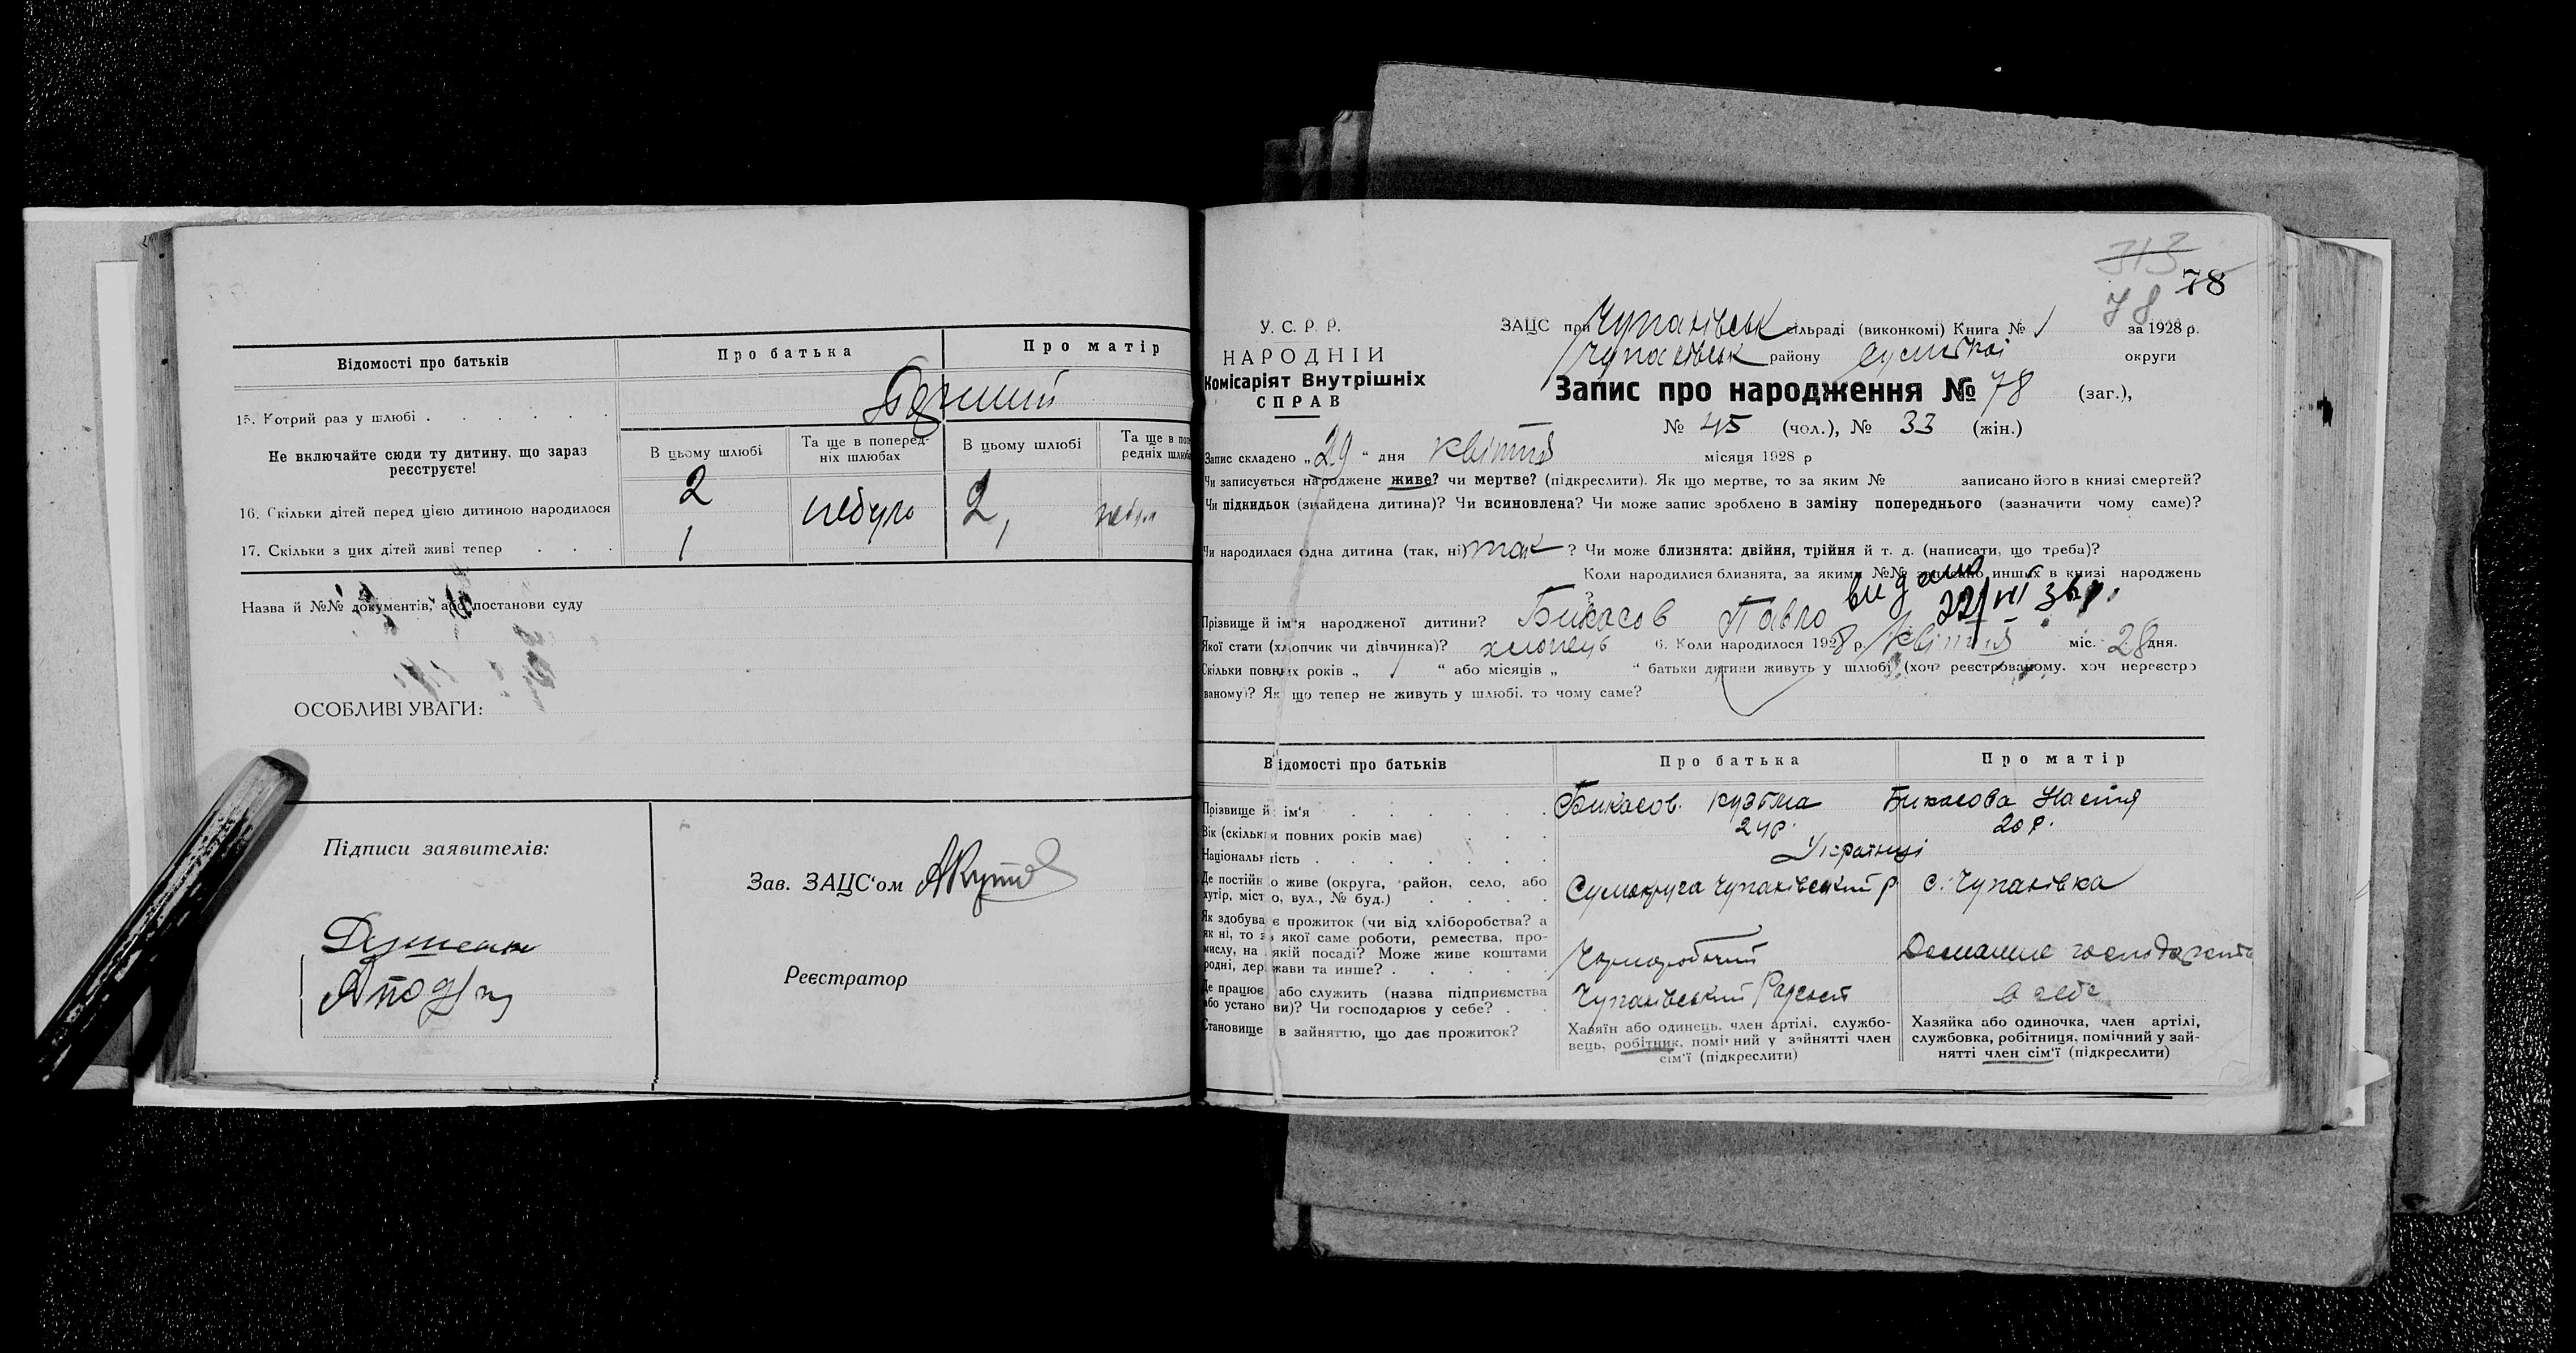 Відомості про батьків
Про батька
Про матір
15. Котрий раз у шлюбі
Не включайте сюди ту дитину, що зараз
реєструєте!
В цьому шлюбі
Та ще в поперед-
ніх шлюбах
В цьому шлюбі
Та ще в поп
редніх шлюба
16. Скільки дітей перед цією дитиною народилося
2
небуло
2,
небул
17. Скільки з цих дітей живі тепер
1
1
Назва й №№ документів, або постанови суду
ОСОБЛИВІ УВАГИ:
Підписи заявителів:
Зав. ЗАЦС'ом
Реєстратор
313
78
78
У. С. Р. Р.
НАРОДНІЙ
Комісаріят Внутрішніх
СПРАВ
ЗАЦС при Чупахівськ сільраді (виконкомі) Книга № 1 за 1928 р.
Чупахівськ району Сумської округи
Запис про народження № 78 (заг.),
№ 45 (чол.), № 33 (жін.)
Запис складено „29“ дня квітня місяця 1928 р
Чи записується народжене живе? чи мертве? (підкреслити). Як що мертве, то за яким № записано його в книзі смертей?
Чи підкидьок (знайдена дитина)? Чи всиновлена? Чи може запис зроблено в заміну попереднього (зазначити чому саме)?
Чи народилася одна дитина (так, ні) так ? Чи може близнята: двійня, трійня й т. д. (написати, що треба)?
Коли народилися близнята, за якими №№ записано инших в книзі народжень
?
видано
22/VII 36 р.
Прізвище й ім'я народженої дитини? Бикасов Павло
Якої стати (хлопчик чи дівчинка)? хлопець 6. Коли народилося 1928 р. квітня міс. 28 дня.
Скільки повних років „ “ або місяців „ “ батьки дитини живуть у шлюбі (хоч реєстрованому, хоч нереєстро
ваному)? Як що тепер не живуть у шлюбі, то чому саме?
Відомості про батьків
Про батька
Про матір
Прізвище й ім'я
Бикасов Кузьма
Бикасова Настя
Вік (скільки повних років має)
24 р.
20 р.
Національність
Українці
Де постійно живе (округа, район, село, або
хутір, місто, вул., № буд.)
Сумокруга Чупахівський р
с. Чупахівка
Як здобуває прожиток (чи від хліборобства? а
як ні, то з якої саме роботи, ремества, про-
мислу, на якій посаді? Може живе коштами
родні, держави та инше?
Чорноробочий
Домашнє господарств
Де працює або служить (назва підприємства
або установи)? Чи господарює у себе?
Чупахівський Радгосп
в себе
Становище в зайняттю, що дає прожиток?
Хазяїн або одинець, член артілі, службо-
вець, робітник, помічний у зайнятті член
сім'ї (підкреслити)
Хазяйка або одиночка, член артілі,
службовка, робітниця, помічний у зай-
нятті член сім'ї (підкреслити)